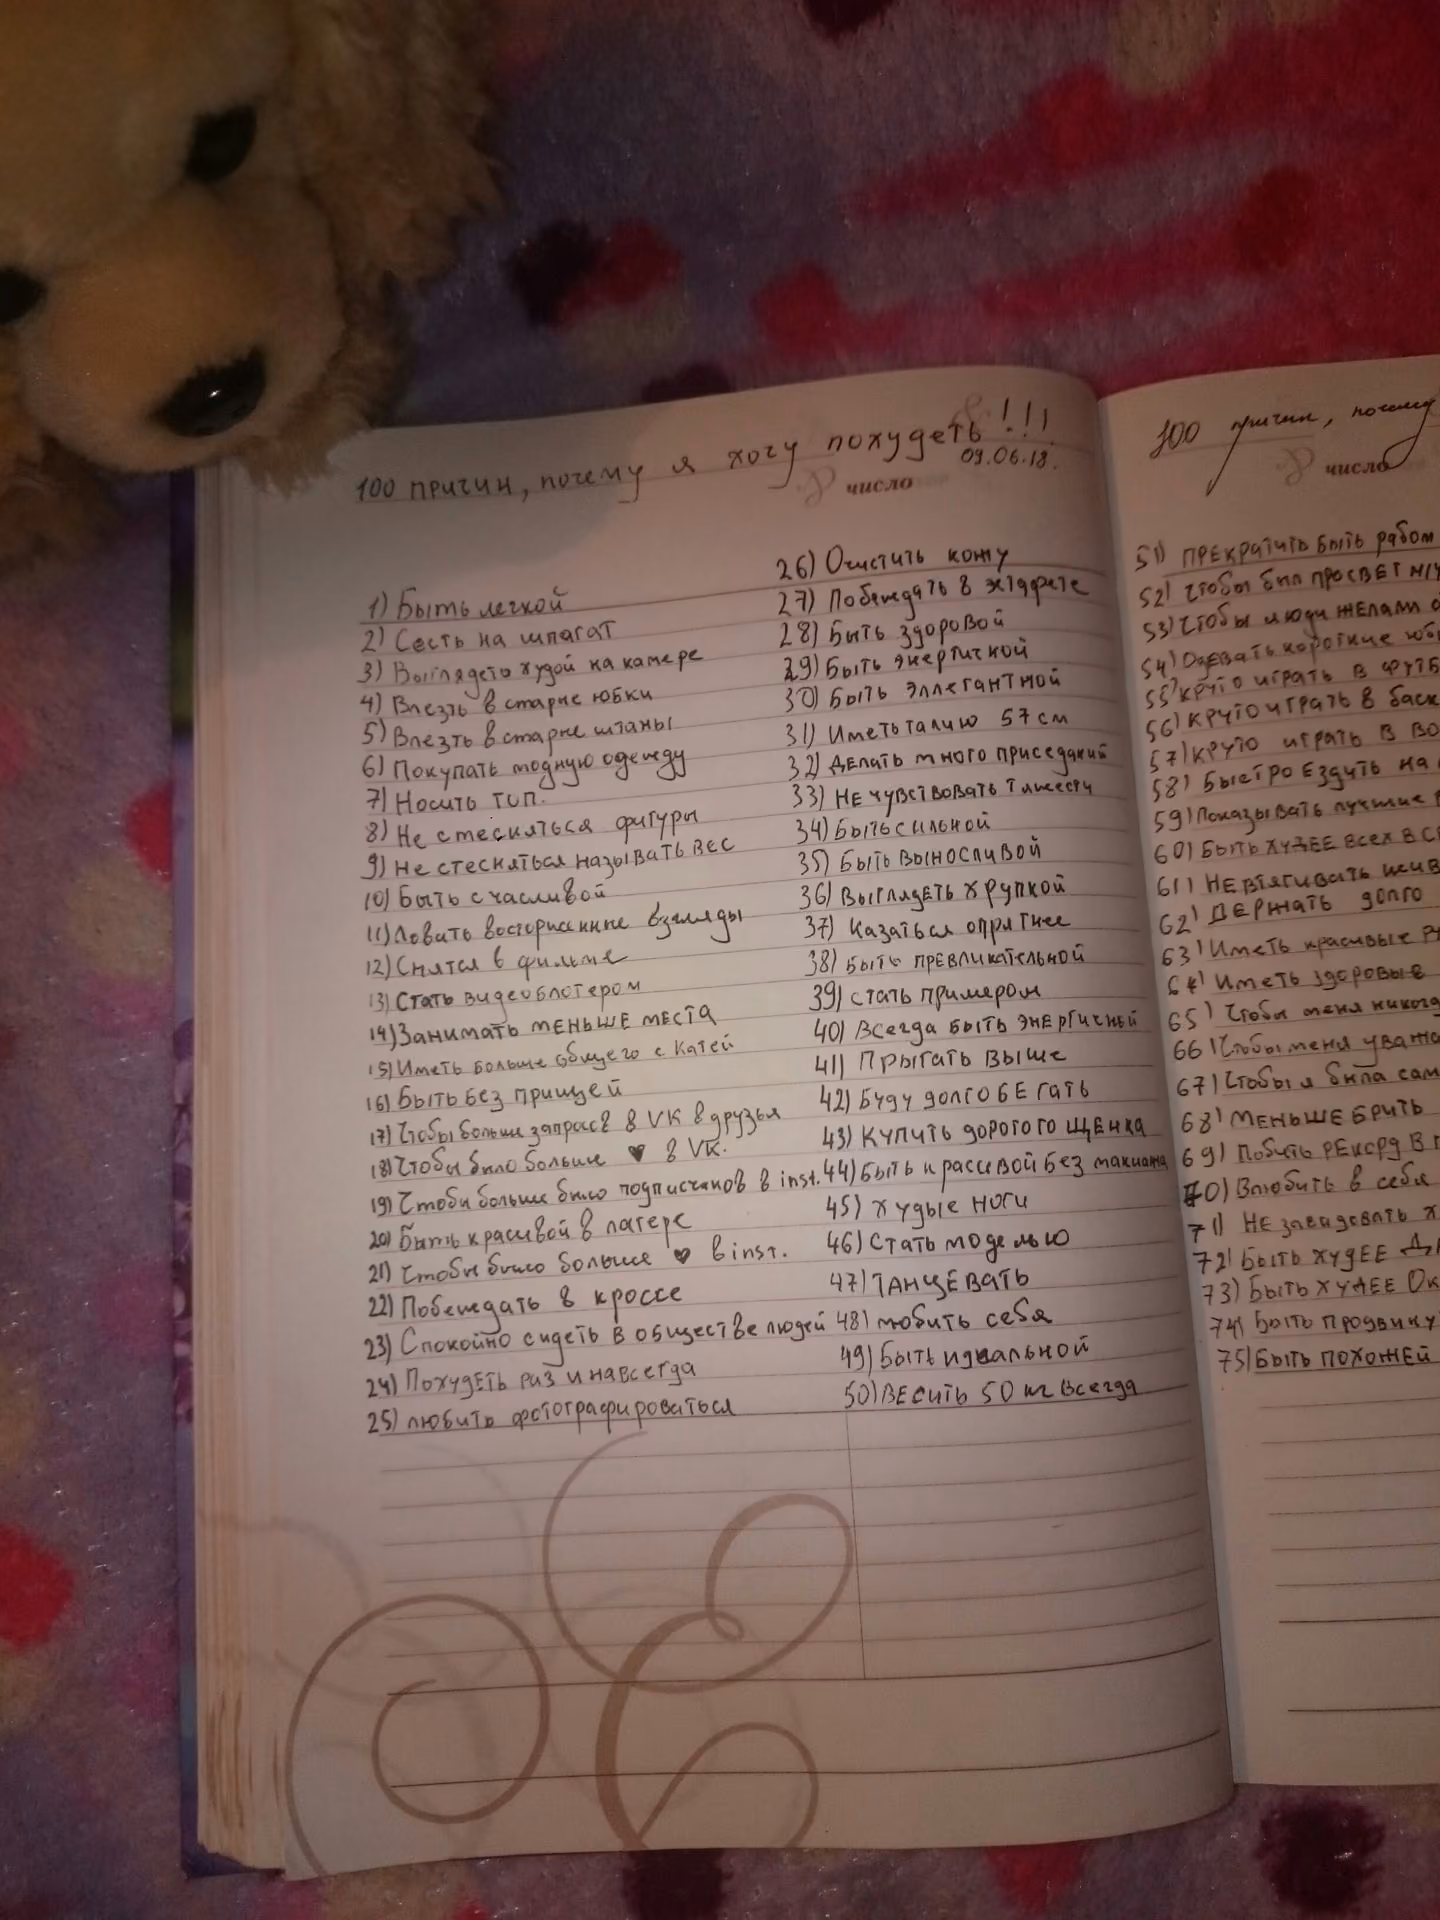 100 причин, почему я хочу похудеть!!!
09.06.18.
число
1) Быть легкой
2) Сесть на шпагат
3) Выглядеть худой на камере
4) Влезть в старые юбки
5) Влезть в старые штаны
6) Покупать модную одежду
7) Носить топ.
8) Не стесняться фигуры
9) Не стесняться называть вес
10) Быть счасливой
11) Ловить восторженные взгляды
12) Снятся в фильме
13) Стать видеоблогером
14) Занимать меньше места
15) Иметь больше общего с Катей
16) Быть без прищей
17) Чтобы больше запросов в VK в друзья
18) Чтобы было больше ♥ в VK.
19) Чтобы больше было подписчиков в inst.
20) Быть красивой в лагере
21) Чтобы было больше ♥ в inst.
22) Побеждать в кроссе
23) Спокойно сидеть в обществе людей
24) Похудеть раз и навсегда
25) Любить фотографироваться
26) Очистить кожу
27) Побеждать в эстафете
28) Быть здоровой
29) Быть энергичной
30) Быть эллегантной
31) Иметь талию 57 см
32) Делать много приседаний
33) Не чувствовать тяжести
34) Быть сильной
35) Быть выносливой
36) Выглядеть хрупкой
37) Казаться опрятнее
38) Быть превликательной
39) Стать примером
40) Всегда быть энергичней
41) Прыгать выше
42) Буду долго бегать
43) Купить дорогого щенка
44) Быть красивой без макияжа
45) Худые ноги
46) Стать моделью
47) Танцевать
48) Любить себя
49) Быть идеальной
50) Весить 50 кг всегда
100 причин, почему
число
51) Прекратить быть рабом
52) Чтобы был просвет
53) Чтобы люди желали
54) Одевать короткие
55) Круто играть в
56) Круто играть в
57) Круто играть в
58) Быстро ездить на
59) Показывать лучшие
60) Быть худее всех в
61) Не втягивать
62) Держать долго
63) Иметь красивые
64) Иметь здоровые
65) Чтобы меня
66) Чтобы меня
67) Чтобы я была
68) Меньше брить
69) Побить рекорд в
70) Влюбить в себя
71) Не завидовать
72) Быть худее
73) Быть худее
74) Быть
75) Быть похожей